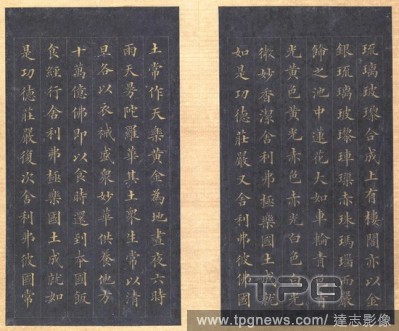 琉璃玻瓈合成上有樓閣亦以金
銀琉璃玻瓈硨磲赤珠瑪瑙而嚴
飾之池中蓮花大如車輪青色青
光黃色黃光赤色赤光白色白光
微妙香潔舍利弗極樂國土成就
如是功德莊嚴又舍利弗彼佛國
土常作天樂黃金為地晝夜六時
雨天曼陀羅華其土眾生常以清
旦各以衣祴盛眾妙華供養他方
十萬億佛即以食時還到本國飯
食經行舍利弗極樂國土成就如
是功德莊嚴復次舍利弗彼國常
TPG
www.tpgnews.com / 達志影像